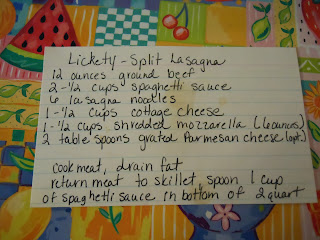 Lickety-Split Lasagna
12 ounces ground beef
2-1/2 cups spaghetti sauce
6 lasagna noodles
1-1/2 cups cottage cheese
1-1/2 cups shredded mozzarella (6 ounces)
2 table spoons grated Parmesan cheese (opt.)
cook meat, drain fat
return meat to skillet, spoon 1 cup
of spaghetti sauce in bottom of 2 quart